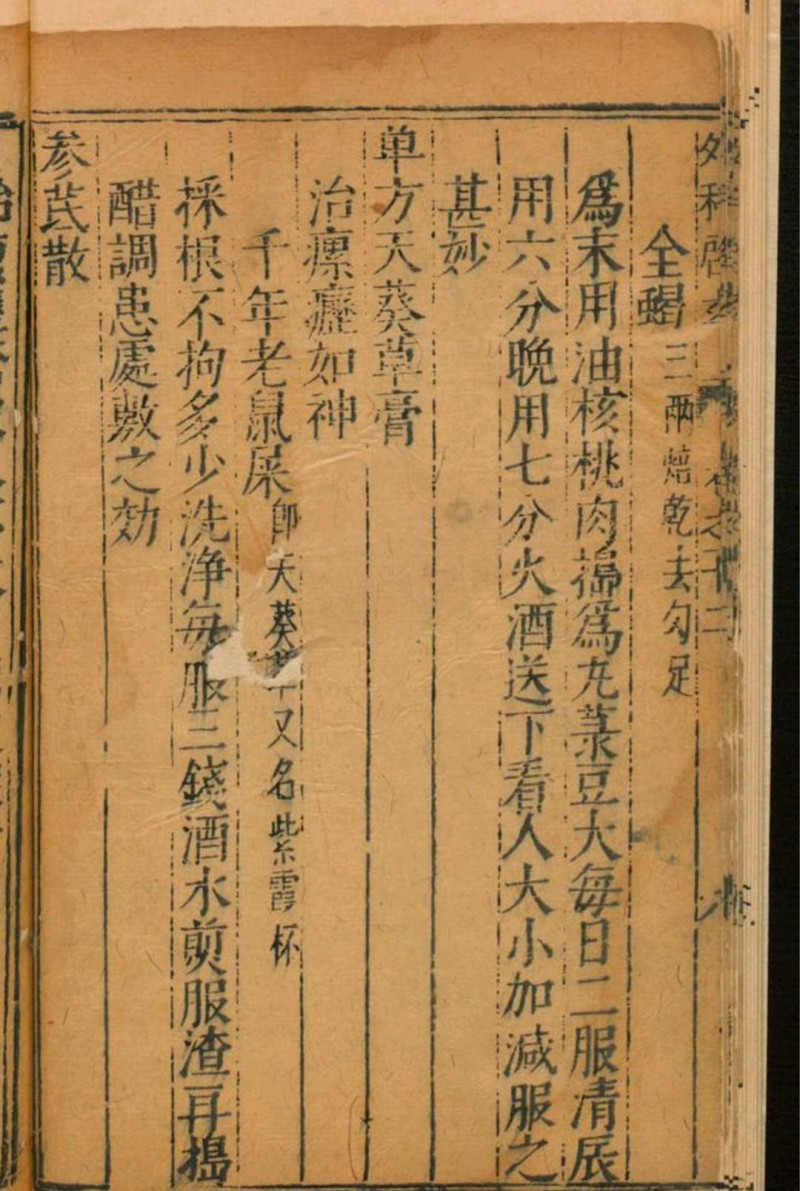 外科啓玄
全蝎三兩焙乾去勾足
爲末用油核桃肉搗爲丸菉豆大每日二服清辰
用六分晚用七分火酒送下看人大小加減服之
甚妙
单方天葵草膏
治瘰癧如神
千年老鼠屎卽天葵草又名紫霞杯
採根不拘多少洗浄每服三錢酒水煎服渣再搗
醋調患處敷之効
参芪散